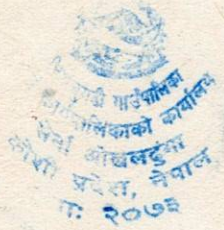 गाउँपालिका
गाउँपालिकाको कार्यालय
ओखलढुंगा
कोशी प्रदेश, नेपाल
२०७३